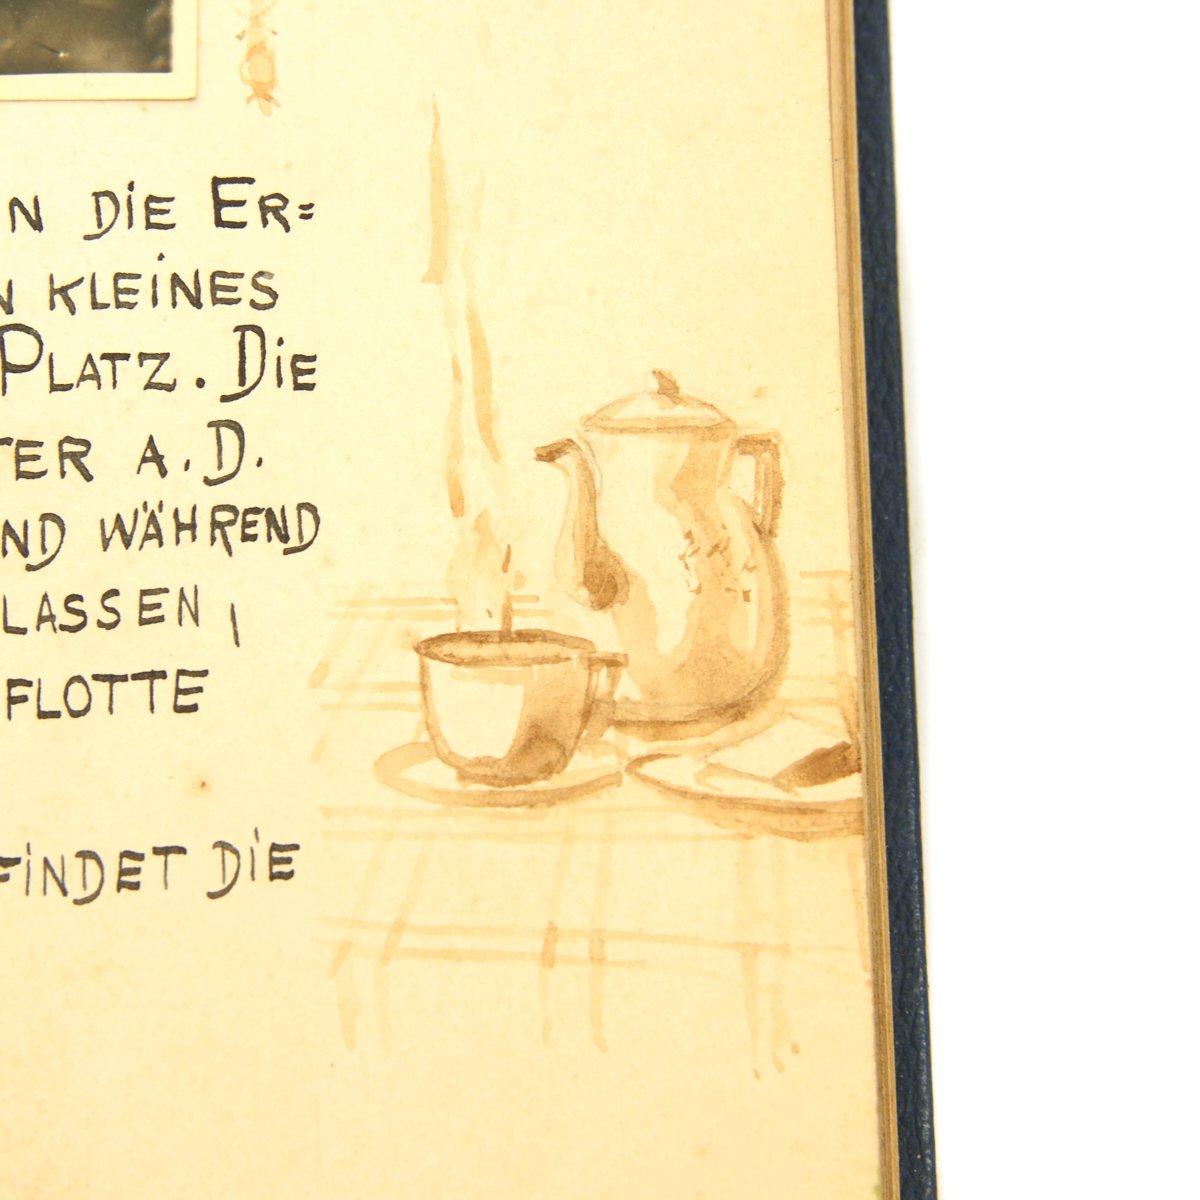 N DIE ER=
N KLEINES
PLATZ. DIE
TER A.D.
ND WÄHREND
LASSEN,
FLOTTE
FINDET DIE